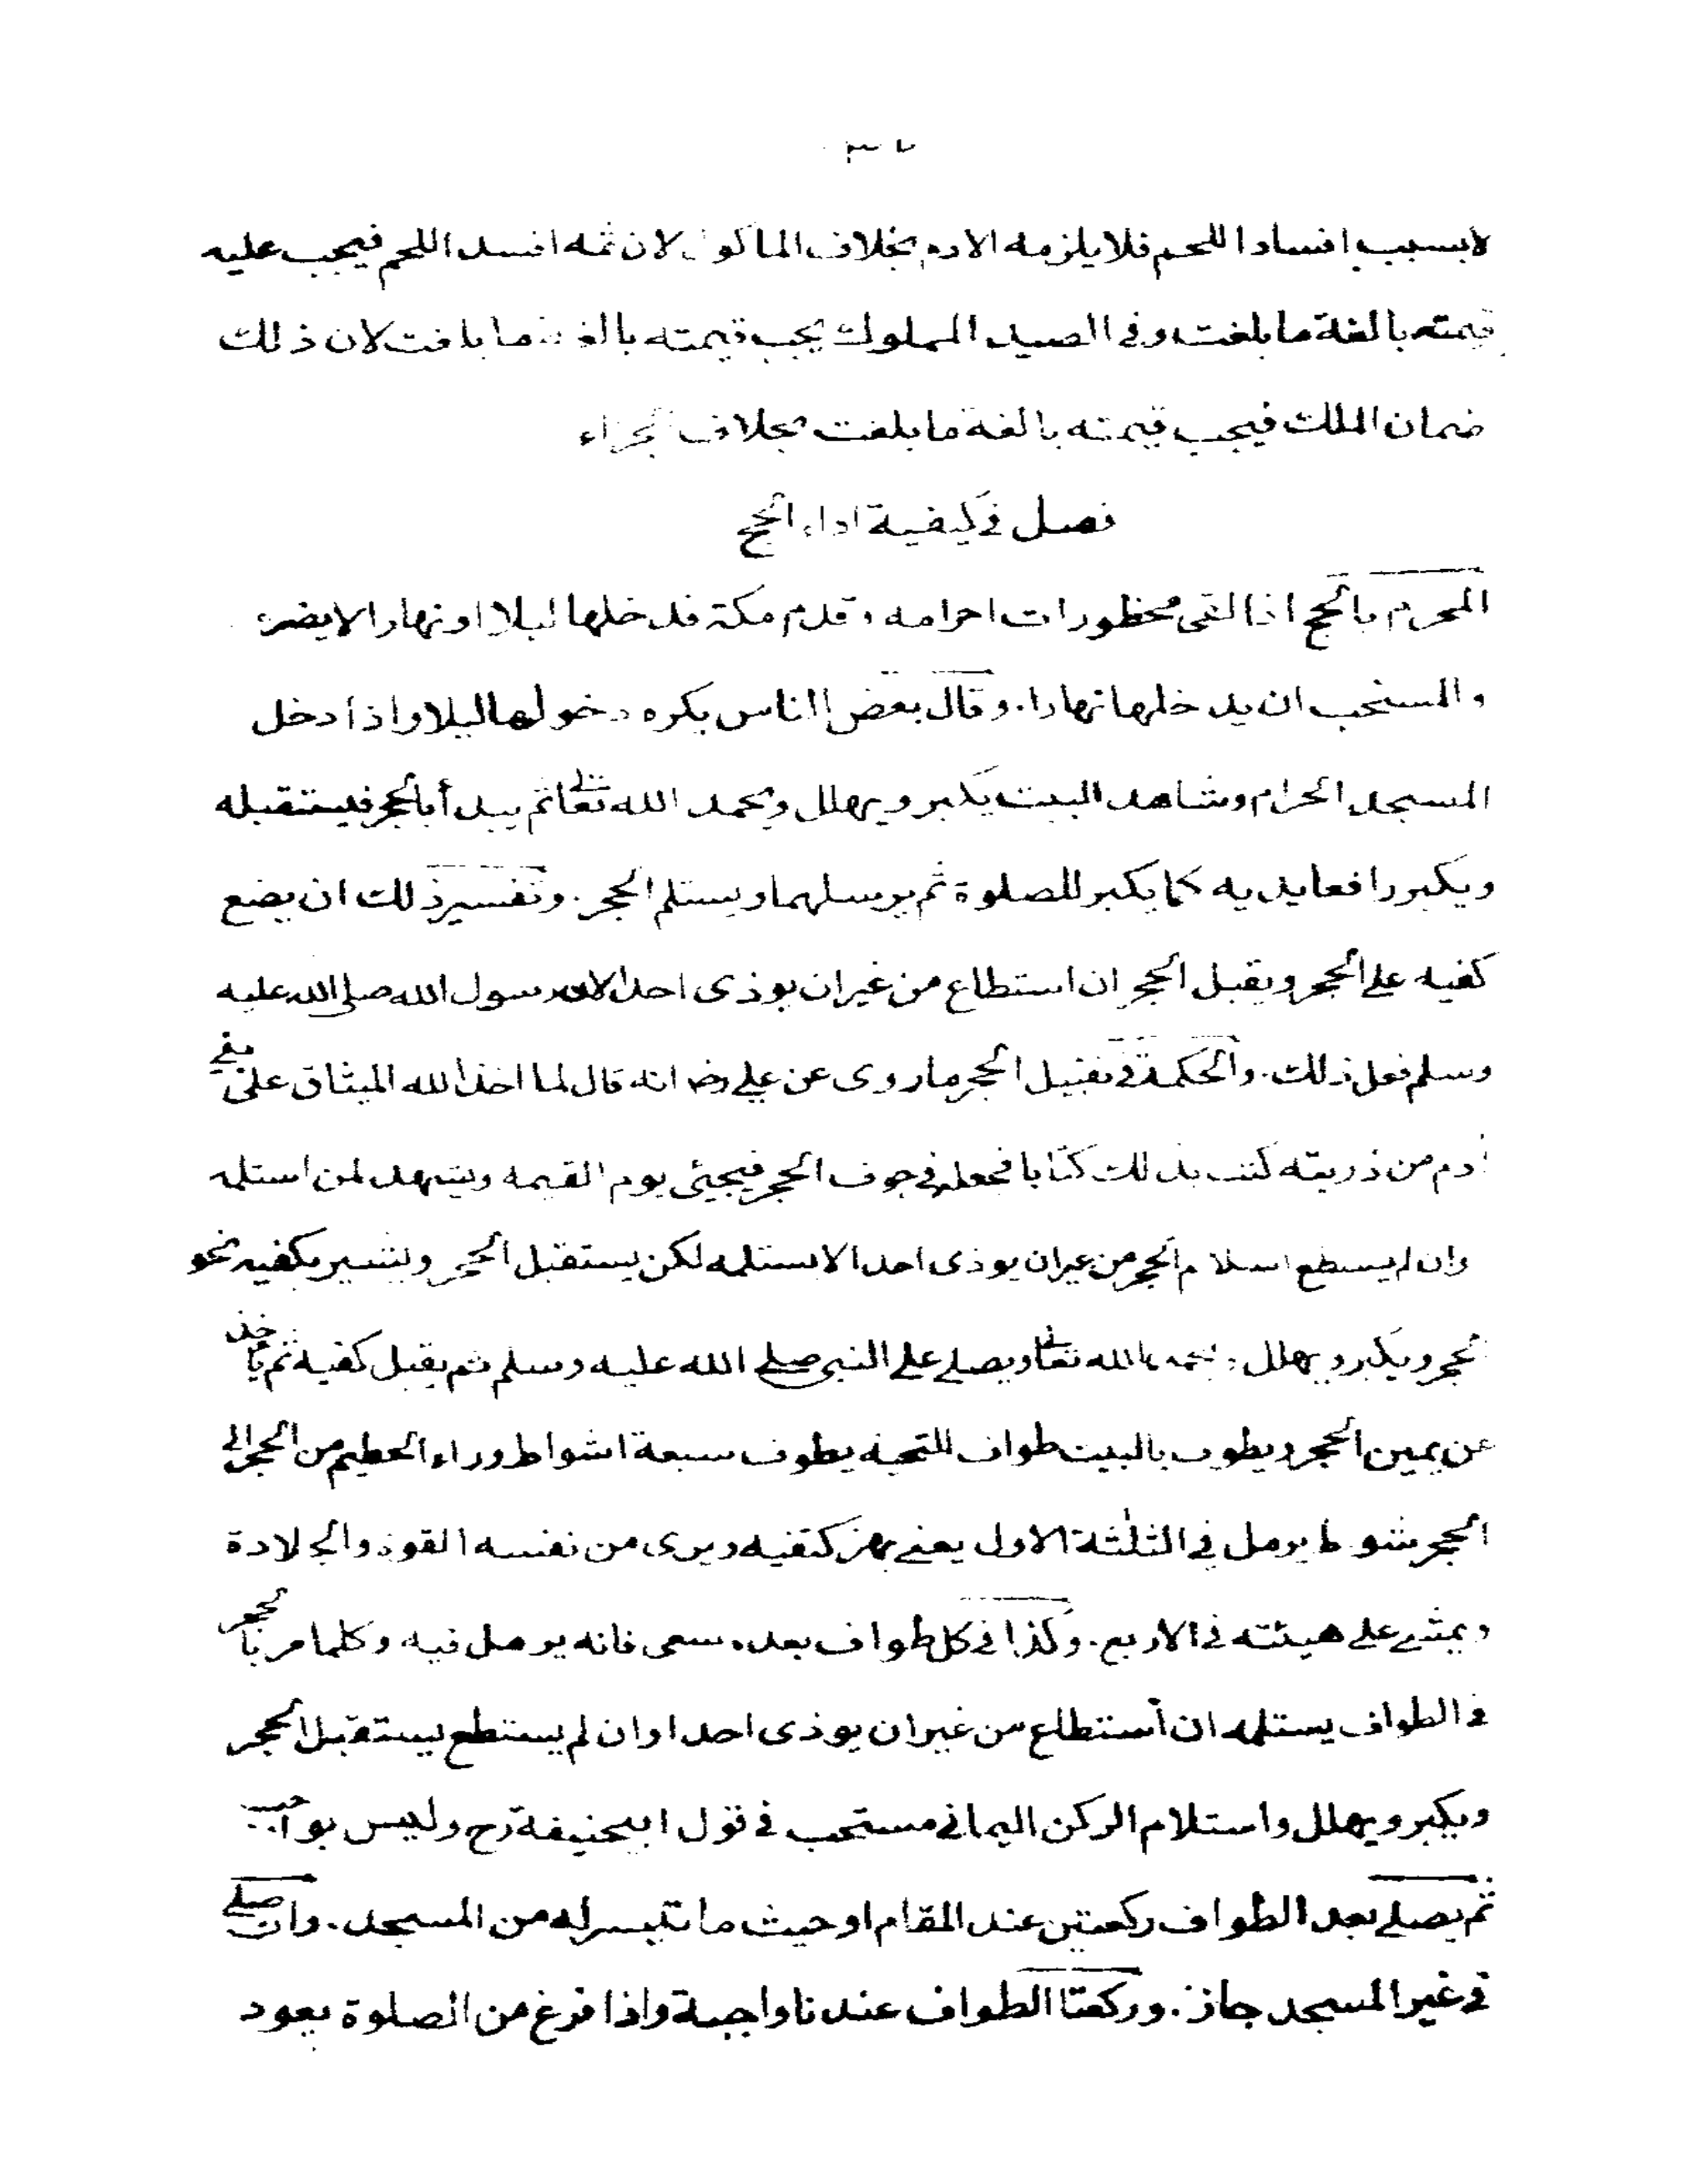 لا بسبب افساد اللحم فلا يلزمه الا دم بخلاف الماكول لان ثمه افسد اللحم فيجب عليه
قيمته بالغة ما بلغت وفى الصيد المملوك يجب قيمته بالغة ما بلغت لان ذلك
ضمان الملك فيجب قيمته بالغة ما بلغت بخلاف الجزاء
فصل فى كيفية اداء الحج
المحرم بالحج اذا اتقى محظورات احرامه وقدم مكة فدخلها ليلا او نهارا لا يضره
والمستحب ان يدخلها نهارا. وقال بعض الناس يكره دخولها ليلا واذا دخل
المسجد الحرام وشاهد البيت يكبر ويهلل ويحمد الله تعالى ثم يبدأ بالحجر فيستقبله
ويكبر رافعا يديه كما يكبر للصلوة ثم يرسلهما ويستلم الحجر. وتفسير ذلك ان يضع
كفيه على الحجر ويقبل الحجر ان استطاع من غير ان يوذى احدا لان رسول الله صلى الله عليه
وسلم فعل ذلك. والحكمة فى تقبيل الحجر ما روى عن على رضـ انه قال لما اخذ الله الميثاق على بنى
ادم من ذريته كتب بذلك كتابا فجعله فى جوف الحجر فيجيئ يوم القيمه ويشهد لمن استلمه
وان لم يسطع اسلام الحجر من غير ان يوذى احدا لا يستلمه لكن يستقبل الحجر ويشير بكفيه نحو
الحجر ويكبر ويهلل و يحمد الله تعالى ويصلى على النبى صلى الله عليه وسلم ثم يقبل كفيه ثم يأخذ
عن يمين الحجر ويطوف بالبيت طواف للتحية يطوف سبعة اشواط وراء الحطيم من الحجر الى
الحجر شوط يرمل فى الثلثة الاول يعنى يهز كتفيه ويرى من نفسه القوة والجلادة
ويمشى على هيئته فى الاربع. وكذا فى كل طواف بعده سعى فانه يرمل فيه وكلما مر بالحجر
فى الطواف يستلمه ان أستطاع من غير ان يوذى احدا وان لم يستطع يستقبل الحجر
ويكبر ويهلل واستلام الركن اليمانى مستحب فى قول ابيحنيفة رح وليس بواجب
ثم يصلى بعد الطواف ركعتين عند المقام او حيث ما تيسر له من المسجد. وان صلى
فى غير المسجد جاز. وركعتا الطواف عندنا واجبة واذا فرغ من الصلوة يعود